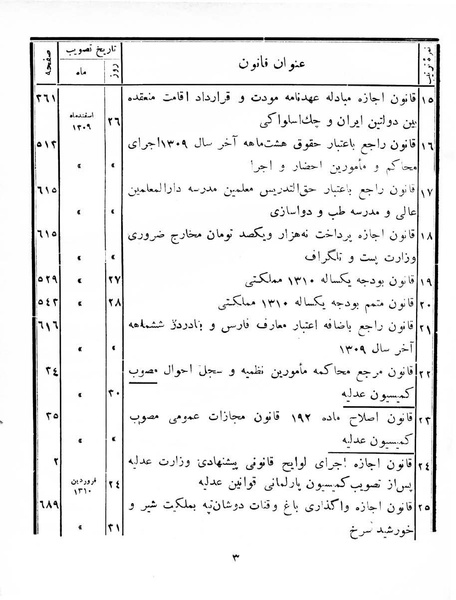 نمره ترتیب | عنوان قانون | تاریخ تصویب | صفحه
روز | ماه
۱۵ قانون اجازه مبادله عهدنامه مودت و قرارداد اقامت منعقده ۳۶۱
بین دولتین ایران و چك‌اسلواکی ۲۶ اسفندماه ۱۳۰۹
۱۶ قانون راجع باعتبار حقوق هشت‌ماهه آخر سال ۱۳۰۹ اجرای ۵۱۳
محاکم و مأمورین احضار و اجرا » »
۱۷ قانون راجع باعتبار حق‌التدریس معلمین مدرسه دارالمعلمین ۶۱۵
عالی و مدرسه طب و دواسازی » »
۱۸ قانون اجازه پرداخت نه‌هزار ویکصد تومان مخارج ضروری ۶۱۵
وزارت پست و تلگراف » »
۱۹ قانون بودجه یکساله ۱۳۱۰ مملکتی ۲۷ » ۵۲۹
۲۰ قانون متمم بودجه یکساله ۱۳۱۰ مملکتی ۲۸ » ۵۴۳
۲۱ قانون راجع باضافه اعتبار معارف فارس و ششماهه ۶۱۶
آخر سال ۱۳۰۹ » »
۲۲ قانون مرجع محاکمه مأمورین نظمیه و سجل احوال مصوب ۲۴
کمیسیون عدلیه ۳۰ »
۲۳ قانون اصلاح ماده ۱۹۲ قانون مجازات عمومی مصوب ۲۵
کمیسیون عدلیه » »
۲۴ قانون اجازه اجرای لوایح قانونی پیشنهادی وزارت عدلیه ۲
پس‌از تصویب کمیسیون پارلمانی قوانین عدلیه ۲۴ فروردین ۱۳۱۰
۲۵ قانون اجازه واگذاری باغ وقنات دوشان‌تپه بملکیت شیر و ۶۸۹
خورشید سرخ ۳۱ »
۳